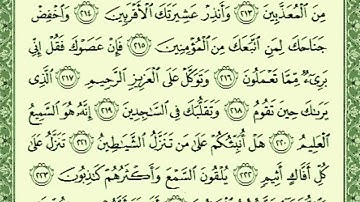 مِنَ ٱلْمُعَذَّبِينَ ﴿٢١٣﴾ وَأَنذِرْ عَشِيرَتَكَ ٱلْأَقْرَبِينَ ﴿٢١٤﴾ وَٱخْفِضْ
جَنَاحَكَ لِمَنِ ٱتَّبَعَكَ مِنَ ٱلْمُؤْمِنِينَ ﴿٢١٥﴾ فَإِنْ عَصَوْكَ فَقُلْ إِنِّي
بَرِيٓءٌ مِّمَّا تَعْمَلُونَ ﴿٢١٦﴾ وَتَوَكَّلْ عَلَى ٱلْعَزِيزِ ٱلرَّحِيمِ ﴿٢١٧﴾ ٱلَّذِي
يَرَىٰكَ حِينَ تَقُومُ ﴿٢١٨﴾ وَتَقَلُّبَكَ فِي ٱلسَّٰجِدِينَ ﴿٢١٩﴾ إِنَّهُۥ هُوَ ٱلسَّمِيعُ
ٱلْعَلِيمُ ﴿٢٢٠﴾ هَلْ أُنَبِّئُكُمْ عَلَىٰ مَن تَنَزَّلُ ٱلشَّيَٰطِينُ ﴿٢٢١﴾ تَنَزَّلُ عَلَىٰ
كُلِّ أَفَّاكٍ أَثِيمٍ ﴿٢٢٢﴾ يُلْقُونَ ٱلسَّمْعَ وَأَكْثَرُهُمْ كَٰذِبُونَ ﴿٢٢٣﴾